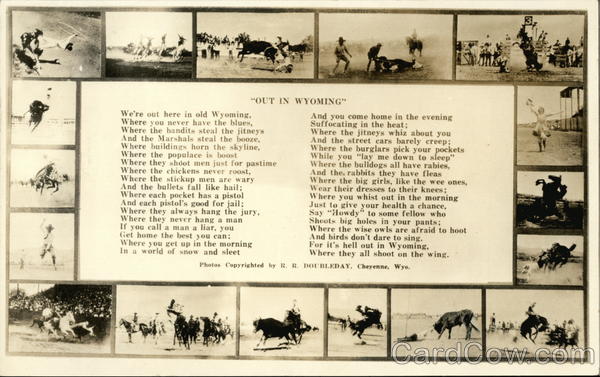 "OUT IN WYOMING"
We're out here in old Wyoming,
Where you never have the blues,
Where the bandits steal the jitneys
And the Marshals steal the booze,
Where buildings horn the skyline,
Where the populace is boost
Where they shoot men just for pastime
Where the chickens never roost,
Where the stickup men are wary
And the bullets fall like hail;
Where each pocket has a pistol
And each pistol's good for jail;
Where they always hang the jury,
Where they never hang a man
If you call a man a liar, you
Get home the best you can;
Where you get up in the morning
In a world of snow and sleet
And you come home in the evening
Suffocating in the heat;
Where the jitneys whiz about you
And the street cars barely creep;
Where the burglars pick your pockets
While you "lay me down to sleep"
Where the bulldogs all have rabies,
And the rabbits they have fleas
Where the big girls, like the wee ones,
Wear their dresses to their knees;
Where you whist out in the morning
Just to give your health a chance,
Say "Howdy" to some fellow who
Shoots big holes in your pants;
Where the wise owls are afraid to hoot
And birds don't dare to sing.
For it's hell out in Wyoming,
Where they all shoot on the wing.
Photos Copyrighted by R. R. DOUBLEDAY, Cheyenne, Wyo.
CardCow.com